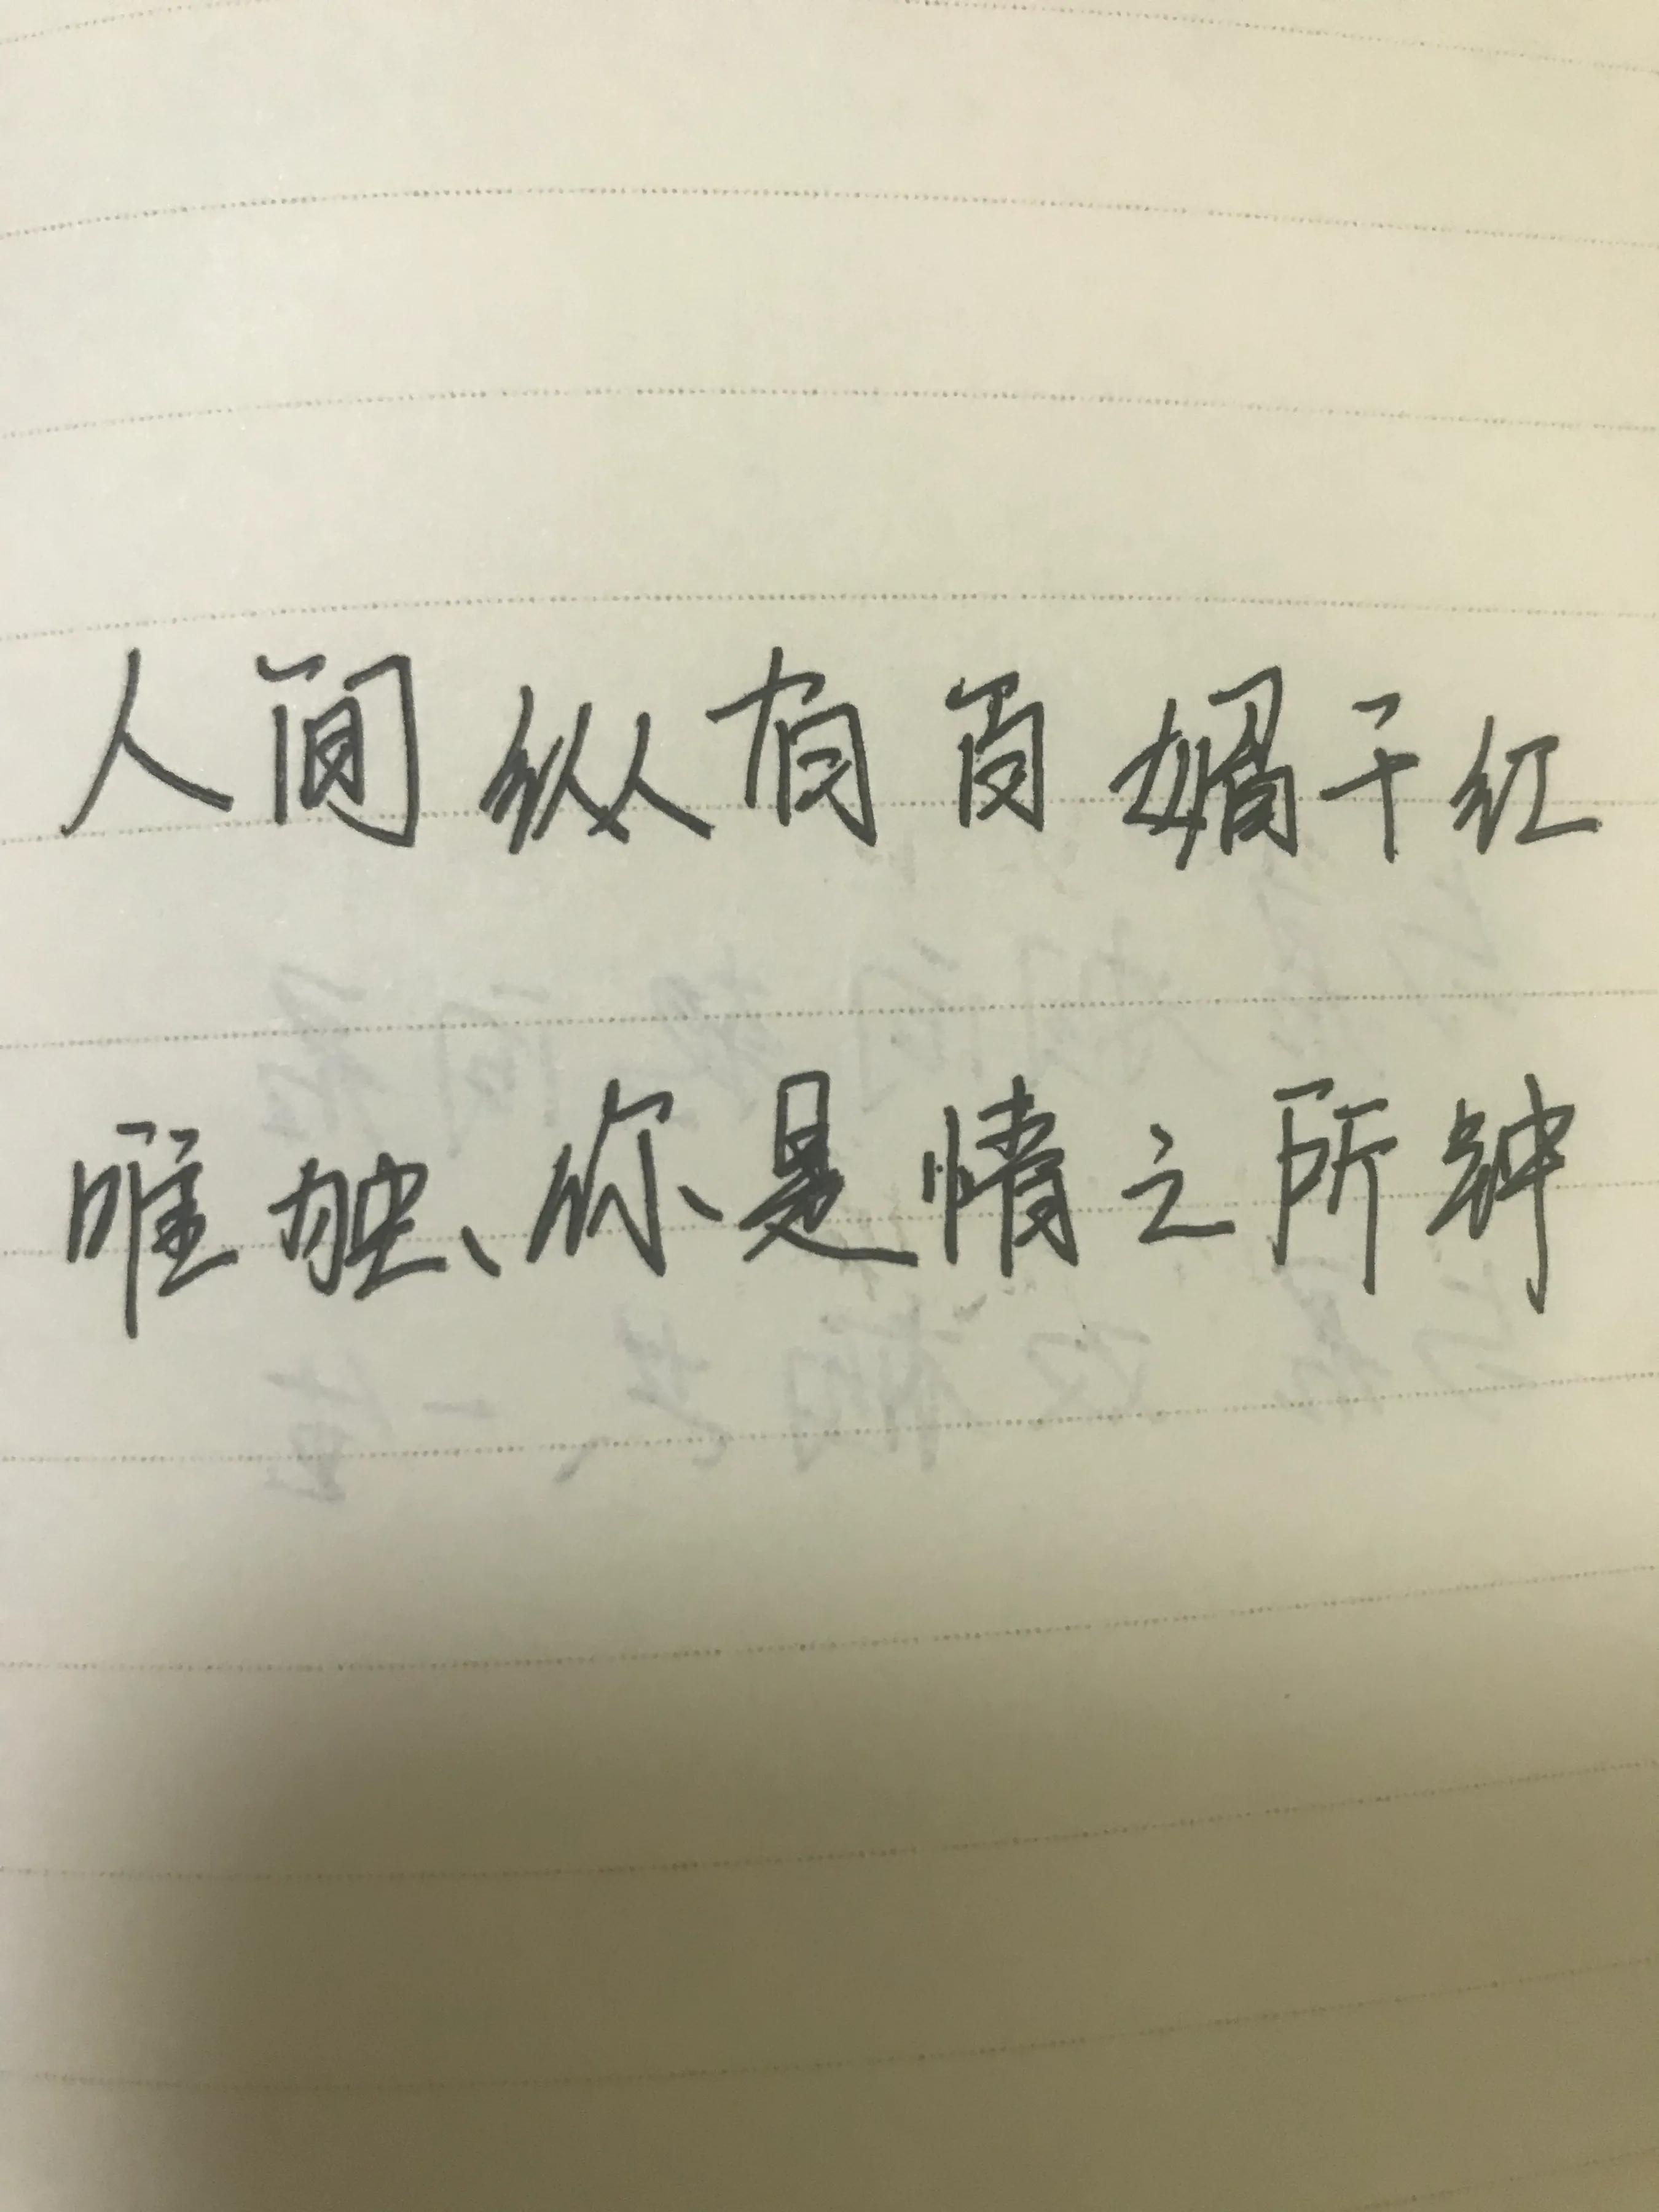 人间纵有百媚千红
唯独你是情之所钟